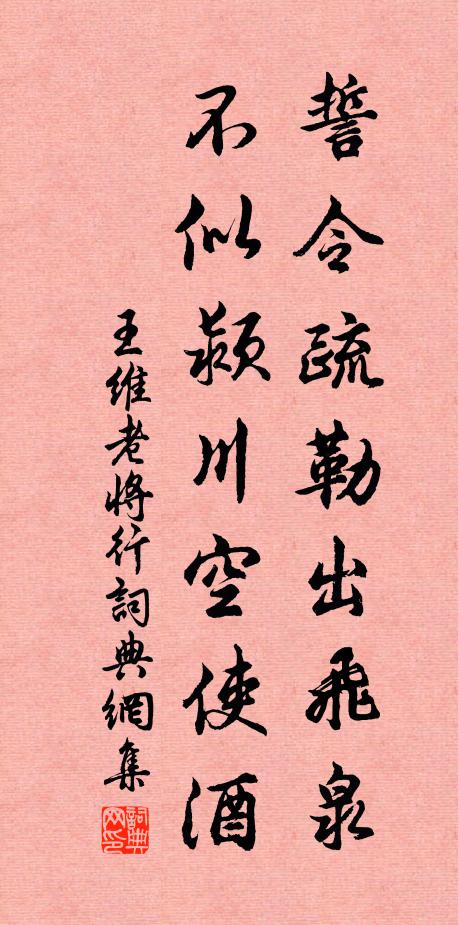 誓令疏勒出飛泉
不似潁川空使酒
王維老將行詞典網集
詞典网印